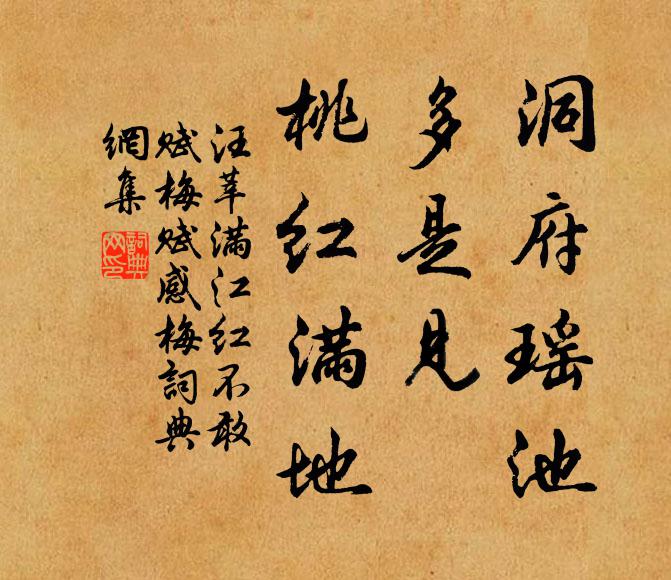 洞府瑶池
多是見
桃红滿地
汪莘滿江红不敢
赋梅赋感梅詞典
網集
詞典
网印